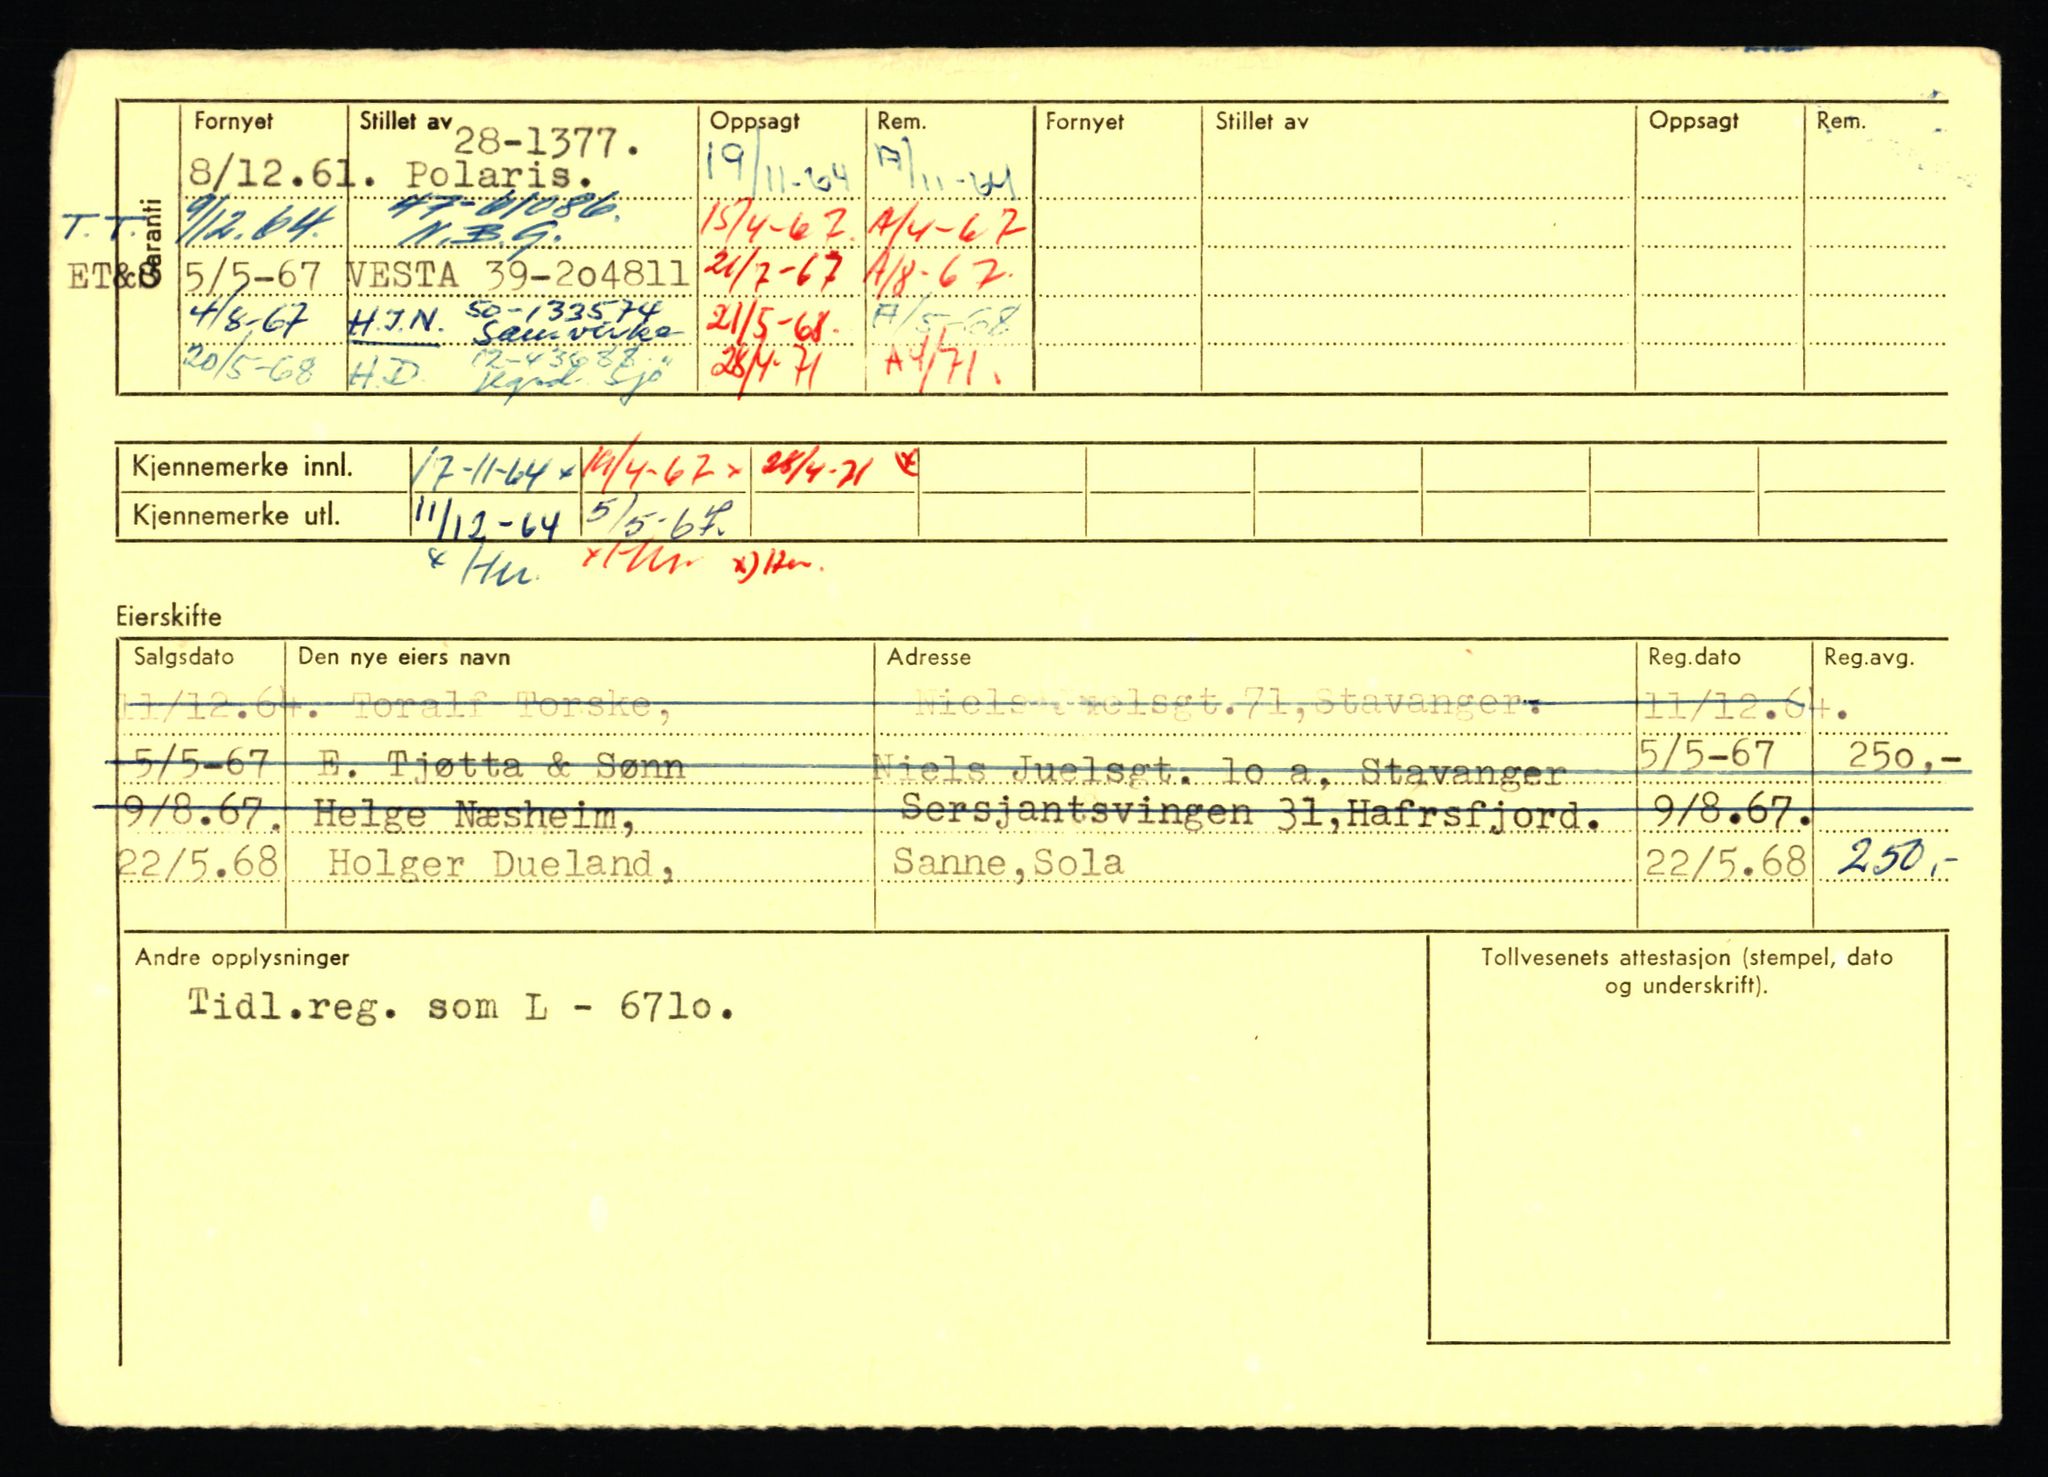 Garanti
Fornyet Stillet av Oppsagt Rem. Fornyet Stillet av Oppsagt Rem.
28-1377.
8/12.61. Polaris. 19/11-64 A/11-64
47-61086.
T.T. 9/12.64. N.B.G. 15/4-67. A/4-67
ET&S 5/5-67 VESTA 39-2o4811 21/7-67 A/8-67.
50-133574
4/8-67 H.J.N. Samvirke 21/5-68. A/5-68
20/5-68 H.D. 28/4-71 A4/71.
Kjennemerke innl. 17-11-64 x 19/4-67 x 28/4-71 x
Kjennemerke utl. 11/12-64 5/5-67.
x Hn. x Hn. x) Hn.
Eierskifte
Salgsdato Den nye eiers navn Adresse Reg.dato Reg.avg.
11/12.64. Toralf Torske, Niels Juelsgt.71,Stavanger. 11/12.64.
5/5-67 E. Tjøtta & Sønn Niels Juelsgt. 1o a, Stavanger 5/5-67 250,-
9/8.67. Helge Næsheim, Sersjantsvingen 31,Hafrsfjord. 9/8.67.
22/5.68 Holger Dueland, Sanne,Sola 22/5.68 250,-
Andre opplysninger
Tollvesenets attestasjon (stempel, dato
og underskrift).
Tidl.reg. som L - 671o.